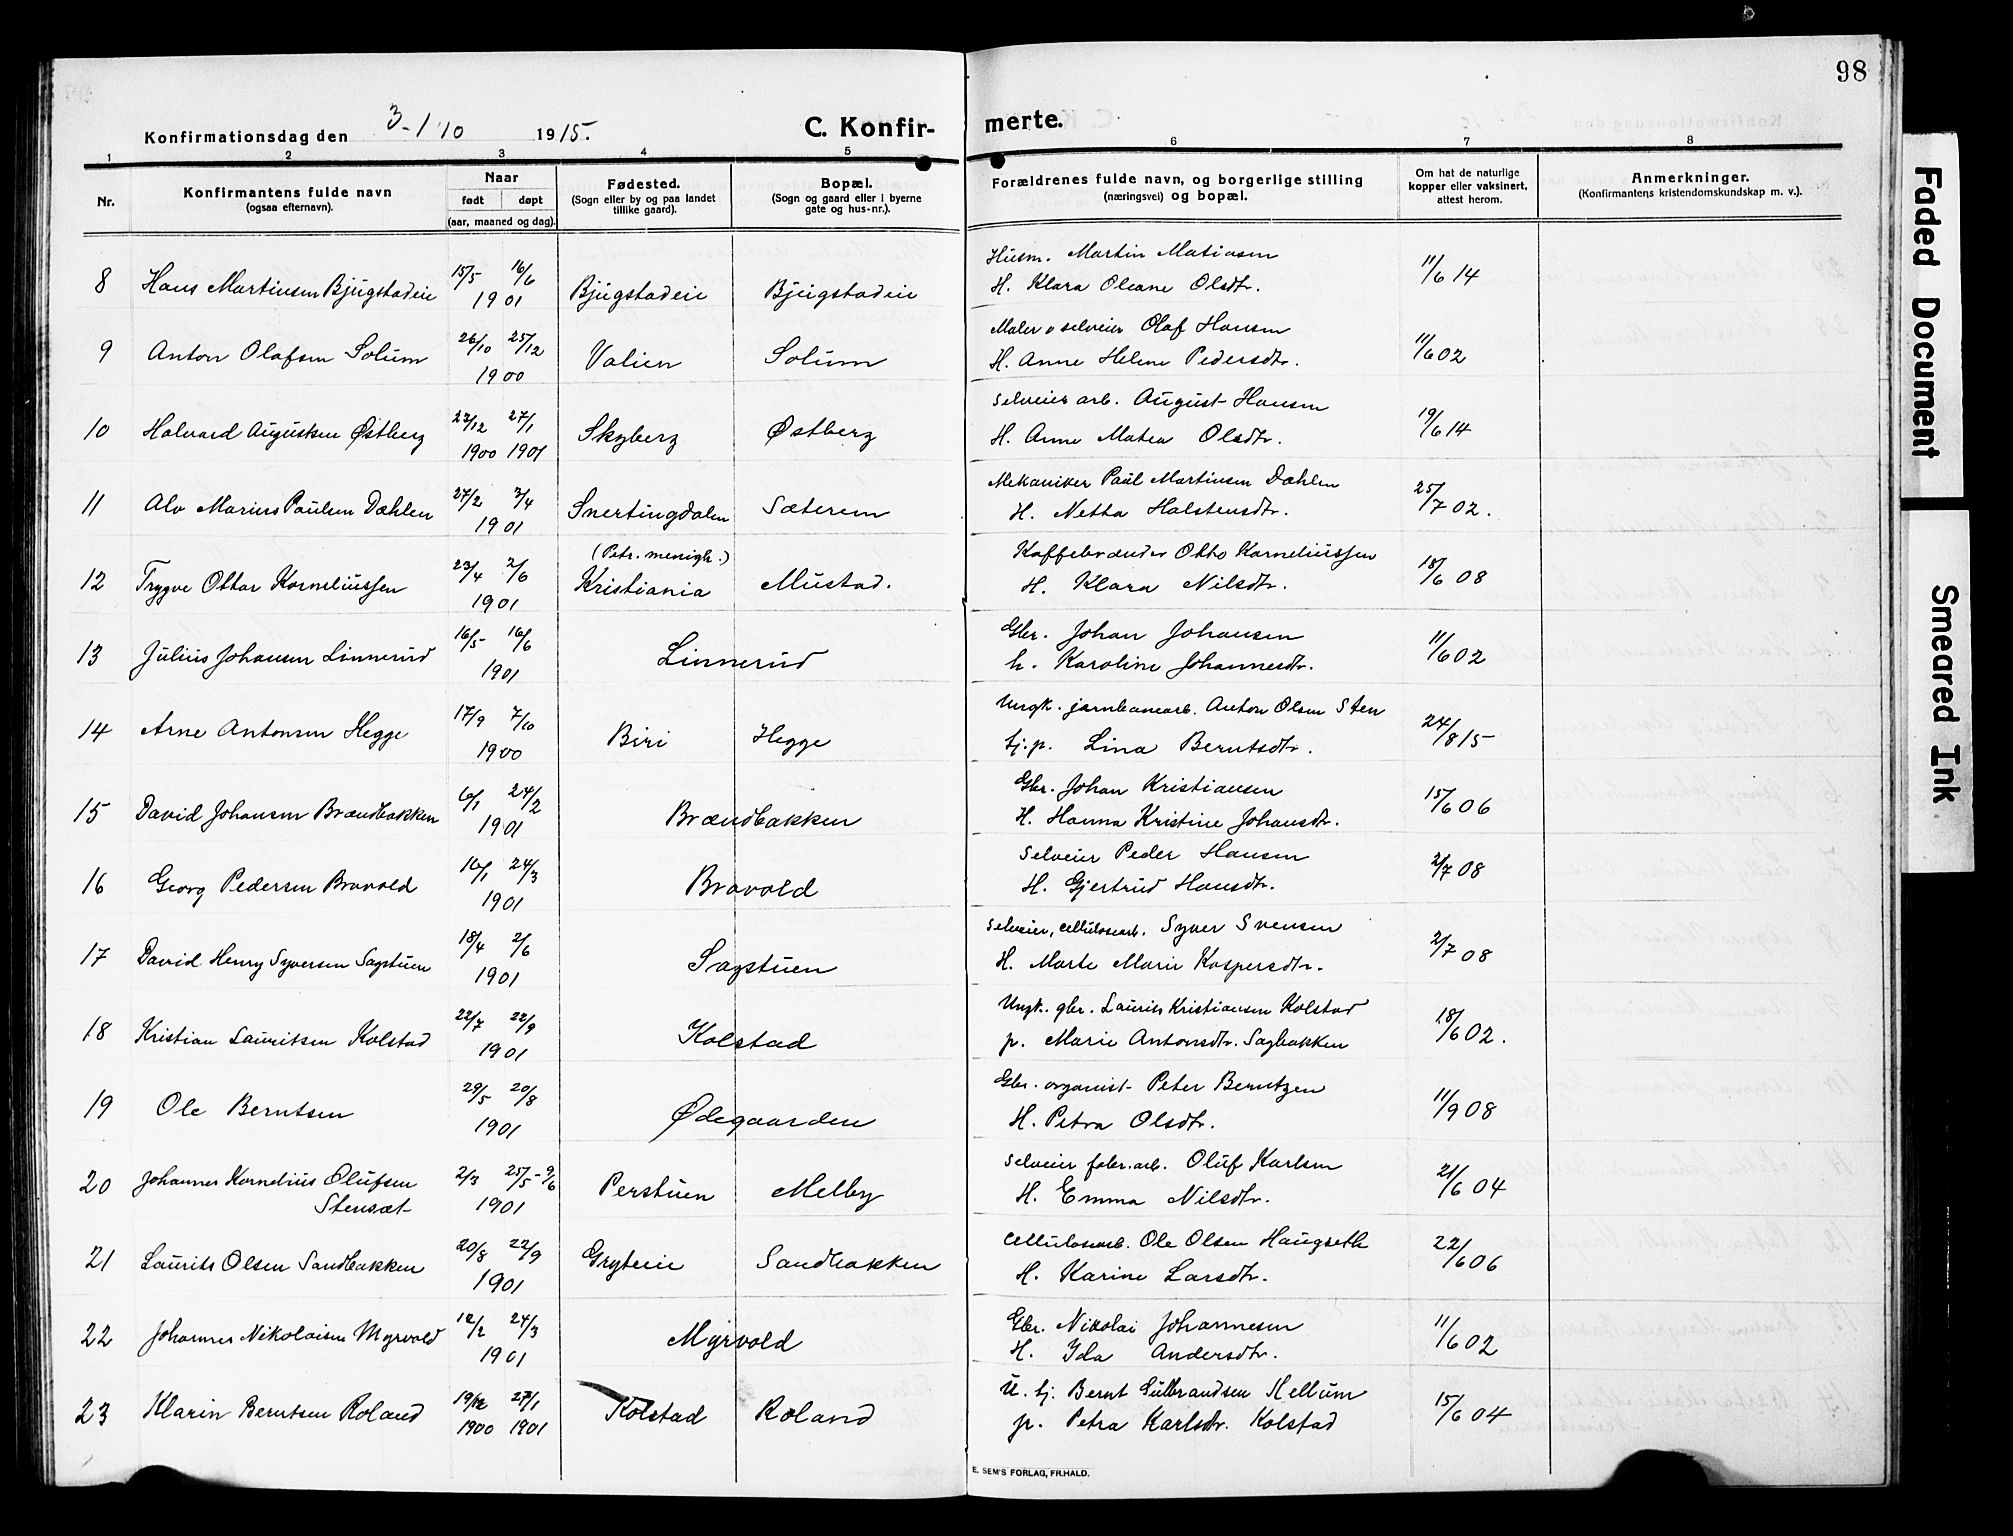 98
Konfirmationsdag den 3-1/10 1915.
C. Konfir-
merte.
1 2 3 4 5 6 7 8
Nr.
Konfirmantens fulde navn
(ogsaa efternavn).
Naar
født døpt
(aar, maaned og dag).
Fødested.
(Sogn eller by og paa landet
tillike gaard).
Bopæl.
(Sogn og gaard eller i byerne
gate og hus-nr.).
Forældrenes fulde navn, og borgerlige stilling
(næringsvei) og bopæl.
Om hat de naturlige
kopper eller vaksinert,
attest herom.
Anmerkninger.
(Konfirmantens kristendomskundskap m. v.).
8 Hans Martinsen Bjugstadeie 15/5 16/6 Bjugstadeie Bjugstadeie Husm. Martin Matiasen 11/6 14
1901 H. Klara Oleane Olsdtr.
9 Anton Olafsen Solum 26/10 25/12 Valien Solum Maler o selveier Olaf Hansen 11/6 02
1900 H. Anne Helene Pedersdtr.
10 Halvard Augustsen Østberg 23/12 27/1 Skyberg Østberg Selveier arb. August Hansen 19/6 14
1900 1901 H. Anne Matea Olsdtr.
11 Alv Marius Paulsen Dæhlen 27/2 7/4 Snertingdalen Sæteren Mekaniker Paul Martinsen Dæhlen 25/7 02.
1901 H. Netta Halstensdtr.
(Petr. menigh.)
12 Trygve Ottar Korneliussen 23/4 2/6 Kristiania Mustad. Kaffebrænder Otto Korneliussen 18/6 08
1901 H. Klara Nilsdtr.
13 Julius Johansen Linnerud 16/5 16/6 Linnerud Gbr. Johan Johansen 11/6 02
1901 h. Karoline Johannesdtr.
14 Arne Antonsen Hegge 17/9 7/10 Biri Hegge Ungk. jernbanearb. Anton Olsen Sten 24/8 15
1900 tj. p. Lina Berntsdtr.
15 David Johansen Brændbakken 6/1 24/2 Brændbakken Gbr. Johan Kristiansen 15/6 06
1901 H. Hanna Kristine Johansdtr.
16 Georg Pedersen Bravold 16/1 24/3 Bravold Selveier Peder Hansen 2/7 08
1901 H. Gjertrud Hansdtr.
17 David Henry Syversen Sagstuen 18/4 2/6 Sagstuen Selveier, cellulosearb. Syver Svensen 2/7 08
1901 H. Marte Marie Kaspersdtr.
18 Kristian Lauritsen Kolstad 22/7 22/9 Kolstad Ungk. gbr. Laurits Kristiansen Kolstad 18/6 02.
1901 p. Marie Antonsdtr. Sagbakken
19 Ole Berntsen 29/5 20/8 Ødegaarden Gbr. organist Peter Berntzen 11/9 08
1901 H. Petra Olsdtr.
20 Johannes Kornelius Olufsen 2/3 25/5-9/6 Perstuen Melby Selveier fabr. arb. Oluf Karlsen 21/6 04
Stensæt 1901 H. Emma Nilsdtr.
21 Laurits Olsen Sandbakken 20/8 22/9 Gryteeie Sandbakken Cellulosearb. Ole Olsen Haugseth 22/6 06
1901 H. Karine Larsdtr.
22 Johannes Nikolaisen Myrvold 12/2 24/3 Myrvold Gbr. Nikolai Johannesen 11/6 02
1901 H. Ida Andersdtr.
23 Klarin Berntsen Roland 19/12 27/1 Kolstad Roland U. tj. Bernt Gulbrandsen Hellum 15/6 04
1900 1901 p. Petra Karlsdtr. Kolstad
E. SEM'S FORLAG, FR.HALD.
Faded Document
Smeared Ink